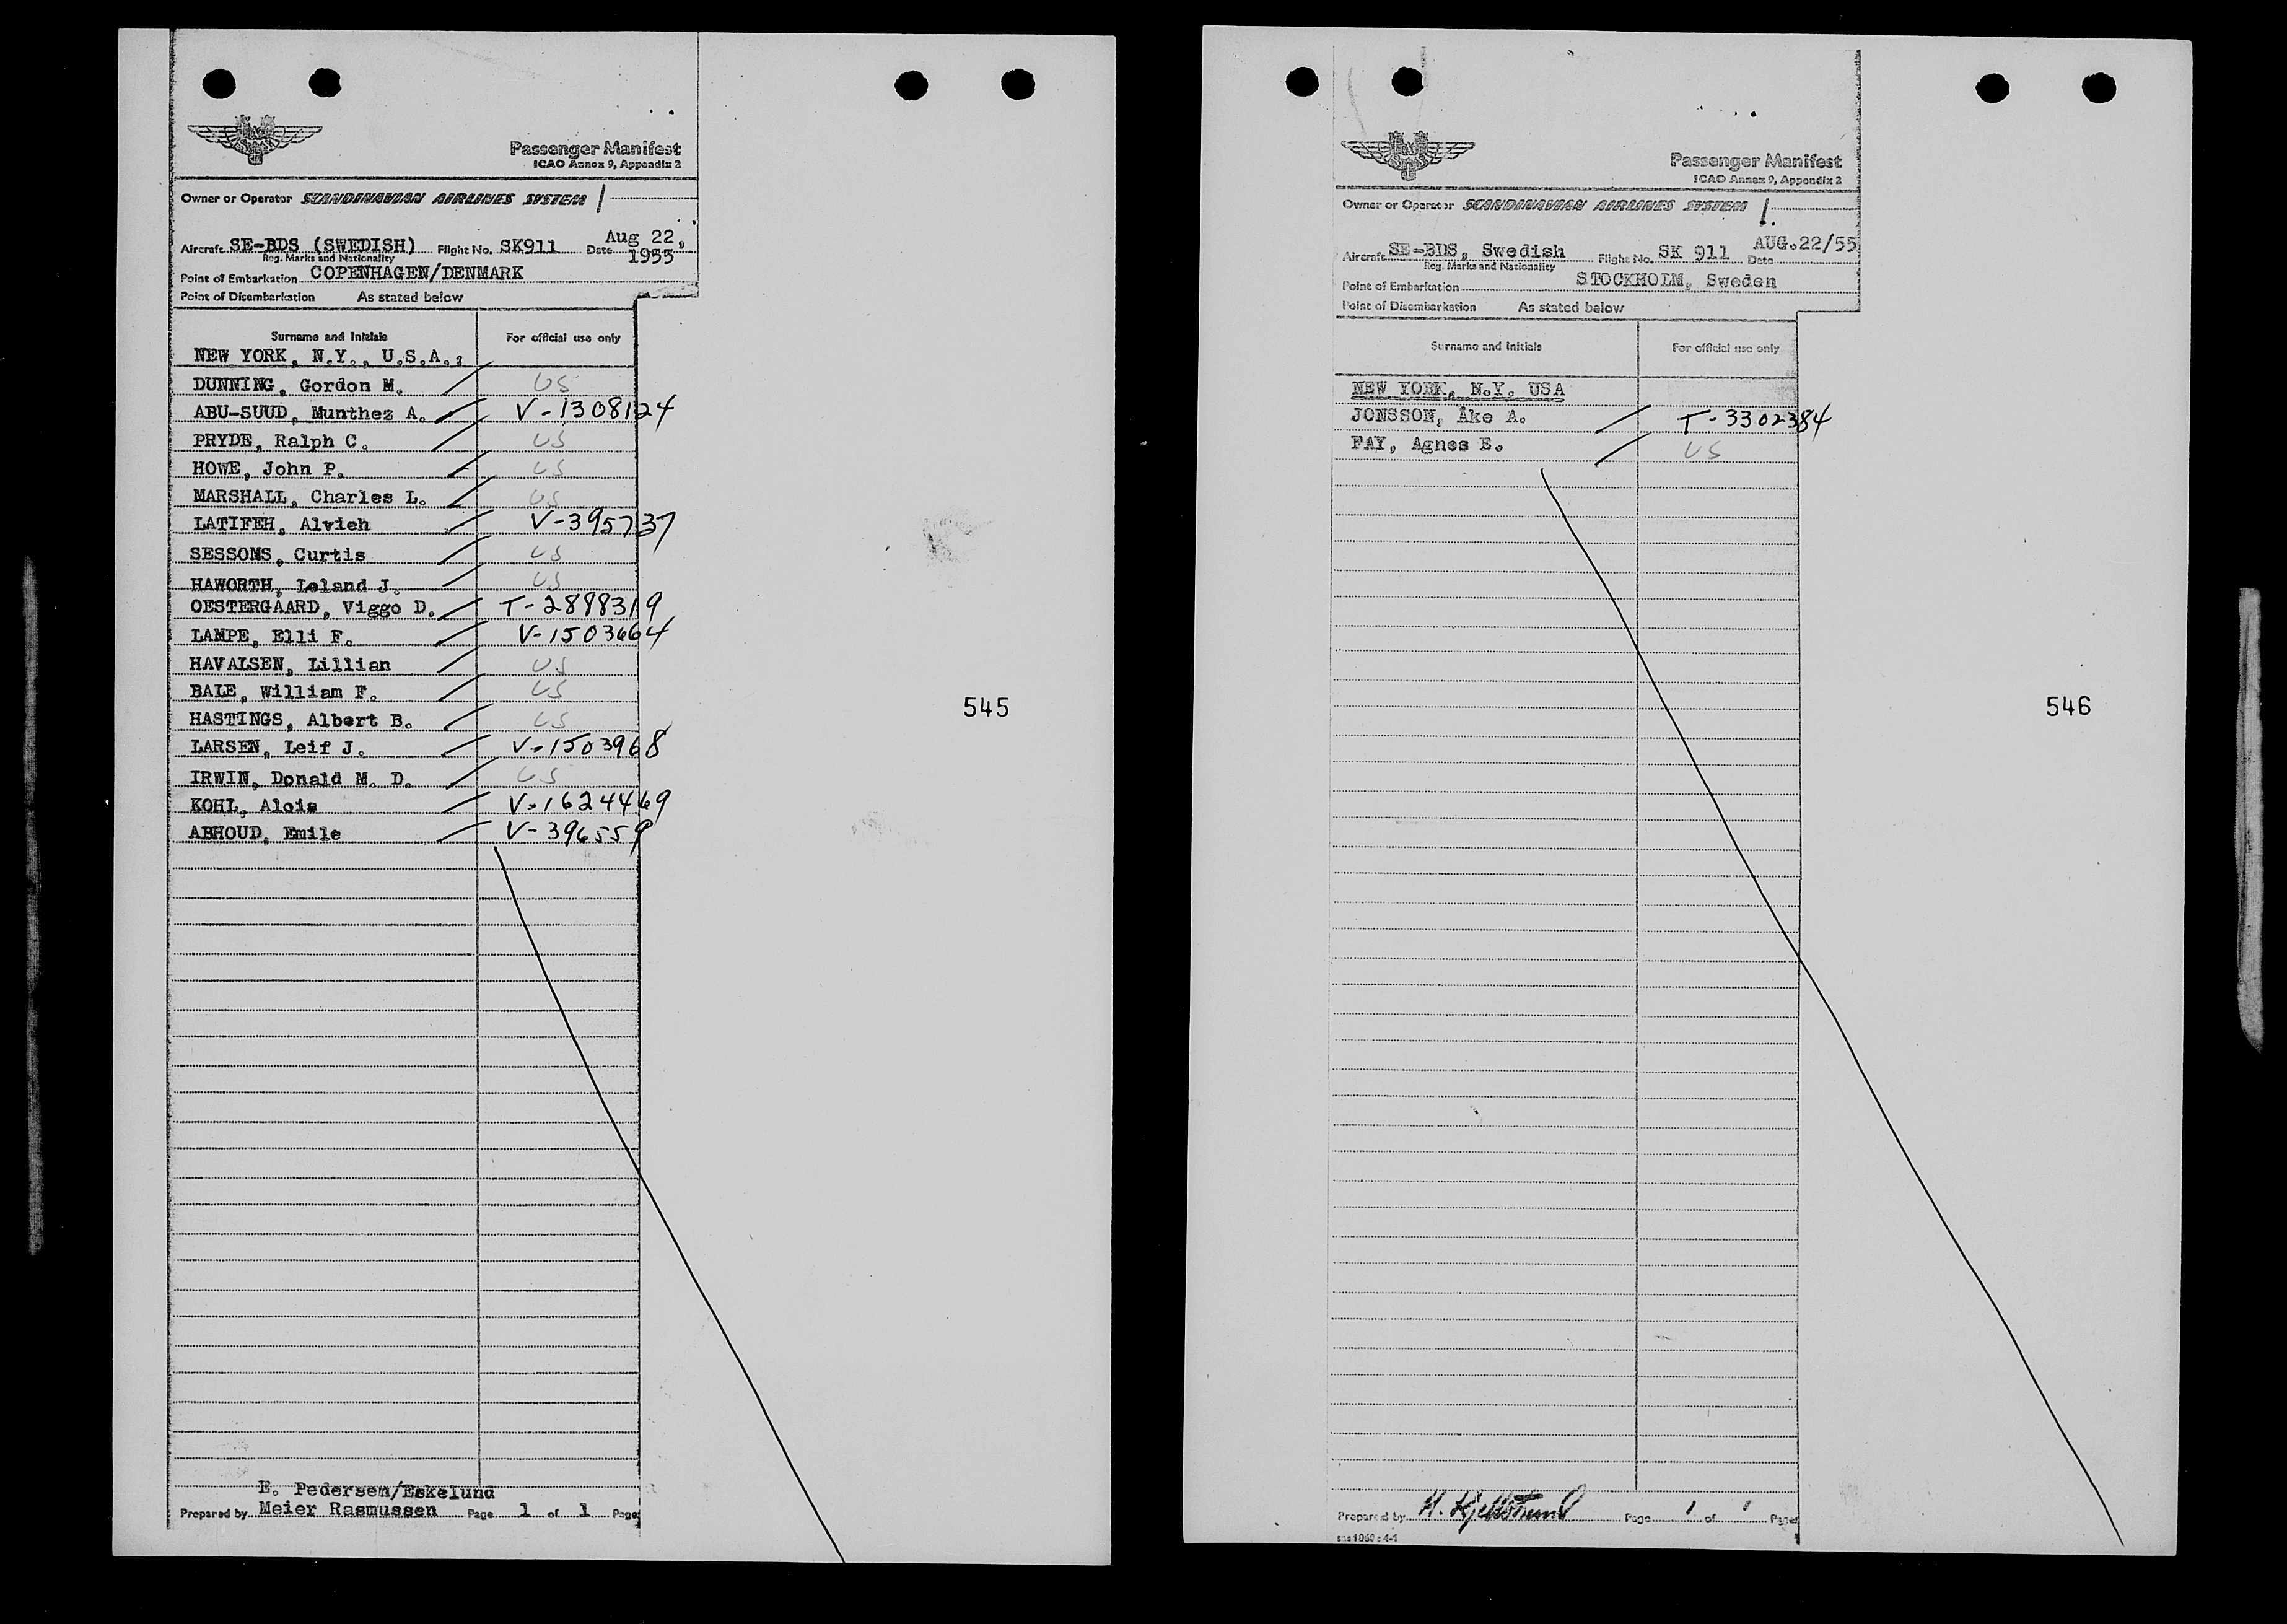 Passenger Manifest
ICAO Annex 9, Appendix 2
Owner or Operator SCANDINAVIAN AIRLINES SYSTEM
Aircraft SE-BDS (SWEDISH) Flight No. SK911 Date Aug 22, 1955
Reg. Marks and Nationality
Point of Embarkation COPENHAGEN/DENMARK
Point of Disembarkation As stated below
Surname and Initials For official use only
NEW YORK, N.Y., U.S.A.:
DUNNING, Gordon M. US
ABU-SUUD, Munthez A. V-1308124
PRYDE, Ralph C. US
HOWE, John P. US
MARSHALL, Charles L. US
LATIFEH, Alvieh V-395737
SESSOMS, Curtis US
HAWORTH, Leland J. US
OESTERGAARD, Viggo D. T-2898319
LAMPE, Elli F. V-1503664
HAVALSEN, Lillian US
BALE, William F. US
HASTINGS, Albert B. US
LARSEN, Leif J. V-1503968
IRWIN, Donald M. D. US
KOHL, Alois V-1624469
ABHOUD, Emile V-396559
545
E. Pedersen/Eskelund
Prepared by Meier Rasmussen Page 1 of 1 Pages
Passenger Manifest
ICAO Annex 9, Appendix 2
Owner or Operator SCANDINAVIAN AIRLINES SYSTEM
Aircraft SE-BDS, Swedish Flight No. SK 911 Date AUG.22/55
Reg. Marks and Nationality
Point of Embarkation STOCKHOLM, Sweden
Point of Disembarkation As stated below
Surname and Initials For official use only
NEW YORK, N.Y. USA
JONSSON, Åke A. T-3302384
FAY, Agnes E. US
546
Prepared by Page 1 of 1 Pages